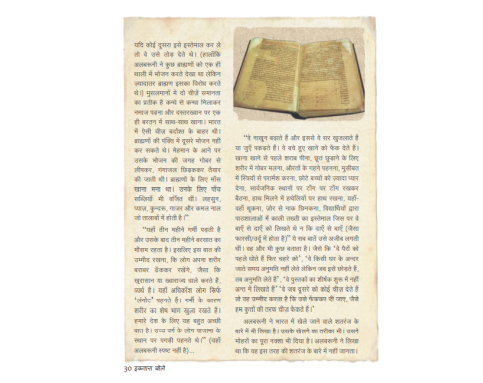 यदि कोई दूसरा इसे इस्तेमाल कर ले
तो वे उसे तोड़ देते थे। (हालाँकि
अलबरूनी ने कुछ ब्राह्मणों को एक ही
थाली में भोजन करते देखा था लेकिन
ज़्यादातर ब्राह्मण इसका विरोध करते
थे।) मुसलमानों में दो चीज़ें समानता
का प्रतीक हैं कन्धे से कन्धा मिलाकर
नमाज़ पढ़ना और दस्तरख़ान पर एक
ही बरतन में साथ-साथ खाना। भारत
में ऐसी चीज़ बर्दाश्त के बाहर थी।
ब्राह्मणों की पंक्ति में दूसरे भोजन नहीं
कर सकते थे। मेहमान के आने पर
उसके भोजन की जगह गोबर से
लीपकर, गंगाजल छिड़ककर तैयार
की जाती थी। ब्राह्मणों के लिए माँस
खाना मना था। उनके लिए पाँच
सब्ज़ियाँ भी वर्जित थीं। लहसुन,
प्याज़, कुन्दरू, गाजर और कमल नाल
जो तालाबों में होती है।”
“यहाँ तीन महीने गर्मी पड़ती है
और उसके बाद तीन महीने बरसात का
मौसम रहता है। इसलिए इस बात की
उम्मीद रखना, कि लोग अपना शरीर
बराबर ढँककर रखेंगे, जैसा कि
खुरासान या खवाराज्य वाले करते हैं,
व्यर्थ है। यहाँ अधिकांश लोग सिर्फ
‘लंगोट’ पहनते हैं। गर्मी के कारण
शरीर का शेष भाग खुला रखते हैं।
हमारे देश के लिए यह बहुत अच्छी
बात है। उच्च वर्ग के लोग पाजामा के
स्थान पर पगड़ी पहनते थे।” (यहाँ
अलबरूनी स्पष्ट नहीं है)...
“वे नाखून बढ़ाते हैं और इससे वे सर खुजलाते हैं
या जुएँ पकड़ते हैं। वे बचे हुए खाने को फेंक देते हैं।
खाना खाने से पहले शराब पीना, छूत छुड़ाने के लिए
शरीर में गोबर मलना, औरतों के गहने पहनना, मुसीबत
में स्त्रियों से परामर्श करना, छोटे बच्चों को ज़्यादा प्यार
देना, सार्वजनिक स्थानों पर टाँग पर टाँग रखकर
बैठना, हाथ मिलने में हथेलियों पर हाथ रखना, यहाँ-
वहाँ थूकना, ज़ोर से नाक छिनकना, विद्यार्थियों द्वारा
पाठशालाओं में काली तख़्ती का इस्तेमाल जिस पर वे
बाएँ से दाएँ को लिखते थे न कि दाएँ से बाएँ (जैसा
फारसी/उर्दू में होता है)” ये सब बातें उसे अजीब लगती
थीं। वह और भी कुछ बताता है। जैसे कि ‘वे पैरों को
पहले धोते हैं फिर चहरे को’, ‘वे किसी घर के अन्दर
जाते समय अनुमति नहीं लेते लेकिन जब इसे छोड़ते हैं,
तब अनुमति लेते हैं’, ‘वे पुस्तकों का शीर्षक शुरू में नहीं
अन्त में लिखते हैं’ ‘वे जब दूसरे को कोई चीज़ देते हैं
तो यह उम्मीद करता है कि उसे फेंककर दी जाए, जैसे
हम कुत्तों की तरफ चीज़ फेंकते हैं।’
अलबरूनी ने भारत में खेले जाने वाले शतरंज के
बारे में भी लिखा है। उसके खेलने का तरीका भी। उसने
मोहरों का पूरा नक्शा भी दिया है। अलबरूनी ने लिखा
था कि वह इस तरह की शतरंज के बारे में नहीं जानता।
30 इकतारा बोले